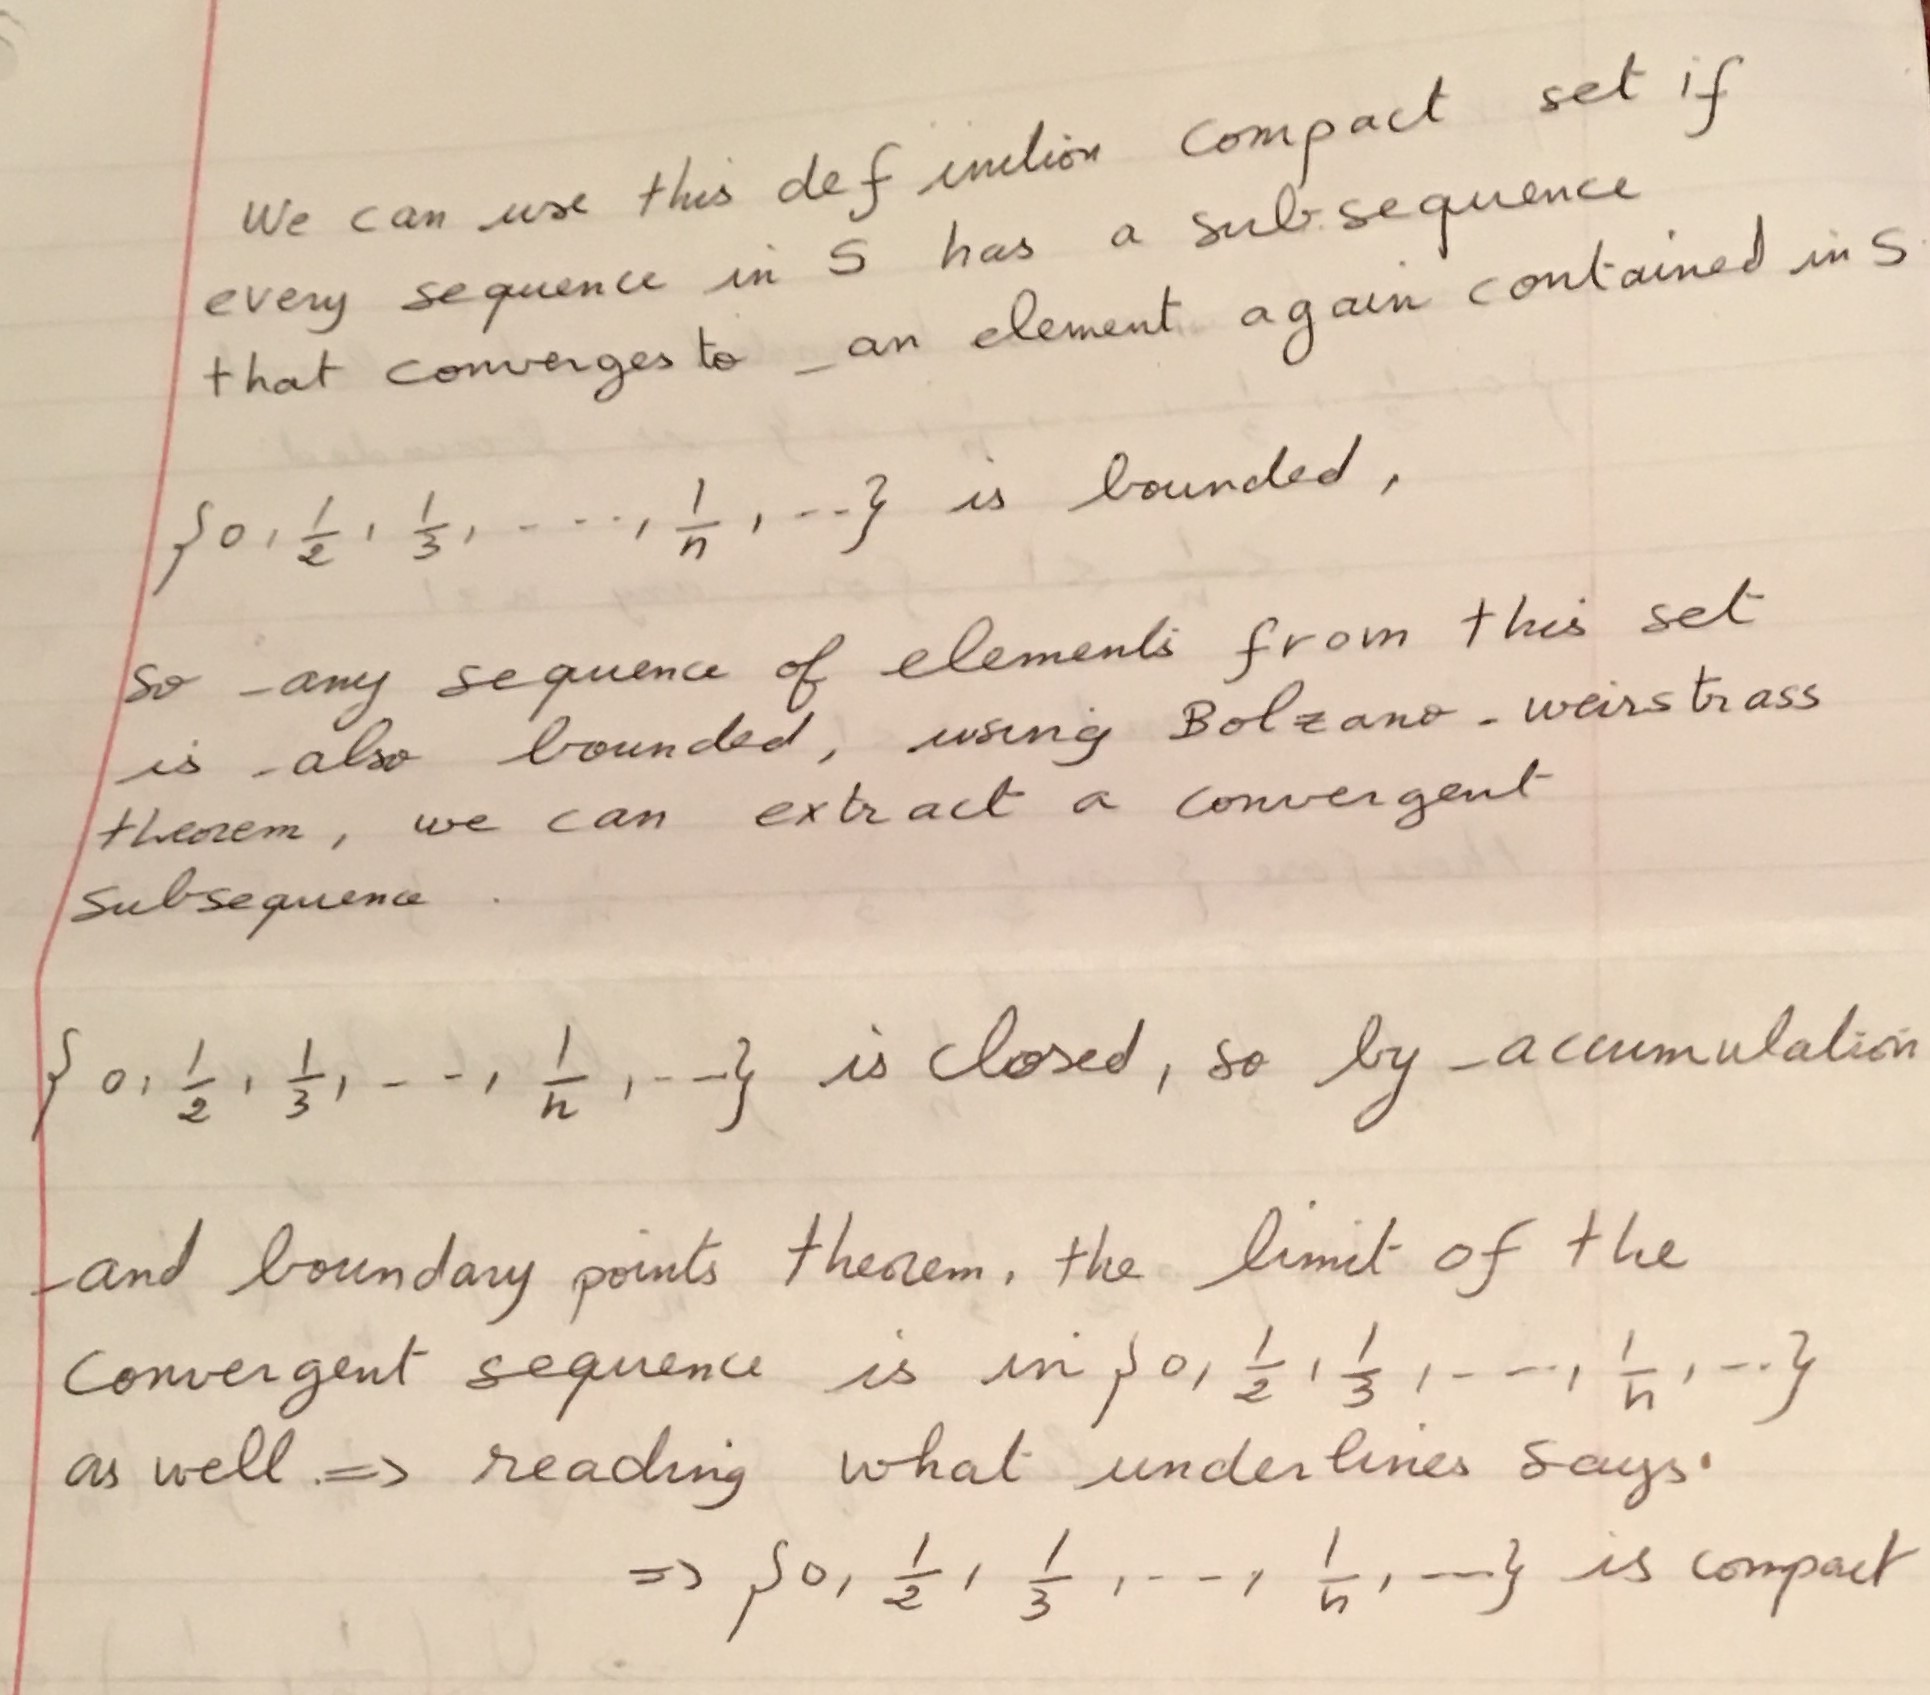 We can use this definition compact set if
every sequence in S has a subsequence
that converges to an element again contained in S
{0, 1/2, 1/3, ...., 1/n, ...} is bounded,
so any sequence of elements from this set
is also bounded, using Bolzano-weirstrass
theorem, we can extract a convergent
subsequence.
{0, 1/2, 1/3, ..., 1/n, ...} is closed, so by accumulation
and boundary points theorem, the limit of the
convergent sequence is in {0, 1/2, 1/3, ..., 1/n, ...}
as well => reading what underlines says.
=> {0, 1/2, 1/3, ..., 1/n, ...} is compact